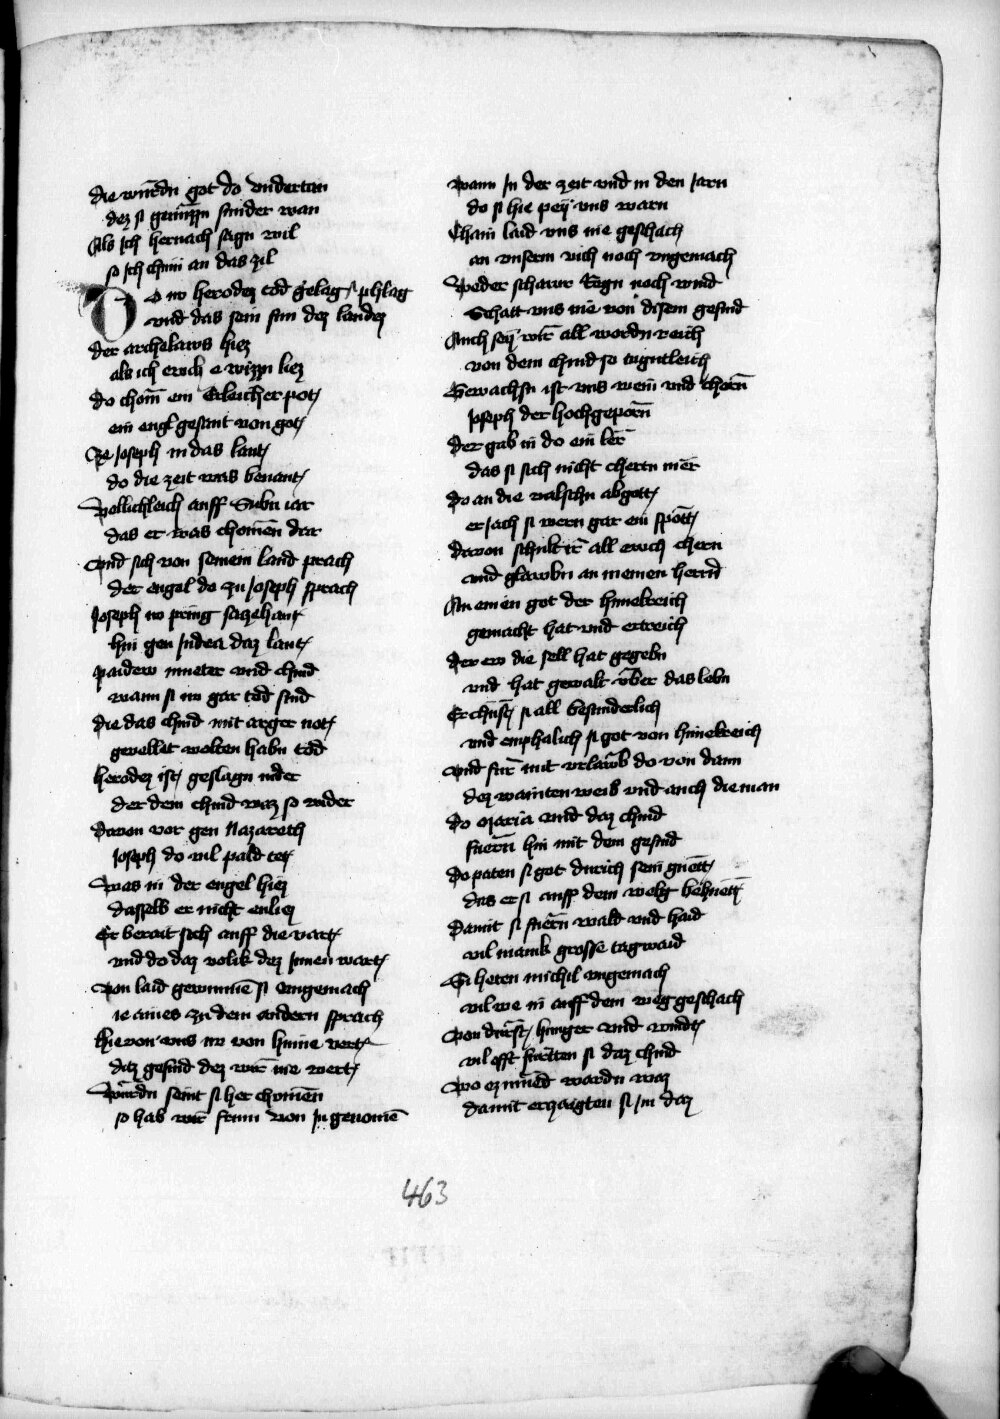 die wurdn got do vndertan
dez si genuzzn sunder wan
Als Ich hernach sagn wil
so Ich chum an das zil
Do no herodez tod gelag / phlag
vnd das sein sun dez landez
der archelaws hiez
als ich ewch e wizzn liez
do chom ein Erleicher pot
ein engl gesant von got
Ze Joseph in das lant
do die zeit was benant
Vollichleich auff Subn iar
das er was chomen dar
Vnd sich von seinem land prach
der engel do zu Joseph sprach
Joseph no pring sazehant
hin gen Judea daz lant
paidew mueter vnd chind
wann si no gar tod sind
die das chind mit arger not
gevellet wolten habn tod
herodez ist geslagn nider
der dem chind waz so wider
davon vor gen Nazareth
Joseph do vil pald tet
Was in der engel hiez
dasselb er nicht enliez
Er berait sich auff die vart
vnd do daz volk dez Innen wart
von laid gewunne si vngemach
ie aines zu dem andern sprach
hie von vns no von hinne vert
daz gesind dez wir nie wert
Wurdn seint si her chomen
so hab wir frum von In genomen
wann In der zeit vnd in den Jarn
do si hie pey vns warn
Chain laid vns nie geschach
an vnserm vich noch vngemach
Weder schawr Regn noch wind
Schatt vns nie von disem gesind
Auch sey wir all wordn reich
von dem chind so tugntleich
Gewachsn ist vns wein vnd chorn
Joseph der hochgeporn
der gab in do ein ler
das si sich nicht chertn mer
do an die valschn abgott
er Jach si wern gar ein spott
davon schult ir all ewch chern
vnd glawbn an meinen herrn
An einen got der himelreich
gemacht hat vnd ertreich
der ew die sell hat gegebn
vnd hat gewalt vber das lebn
Er chust si all besunderlich
vnd emphalich si got von himelreich
Vnd fur mit vrlawb do von dann
dez wainten weib vnd auch die man
do Maria vnd daz chind
fuern hin mit dem gesind
do paten si got durich sein guett
das er si auff dem weg behuett
Damit si fuern wald vnd haid
vil manik grosse tagwaid
Si heten michil vngemach
vil we in auff dem weg geschach
Von durst hunger vnd wind
vil offt furtten si daz chind
Wo ez mued wordn waz
damit erzaigten si Im daz
463